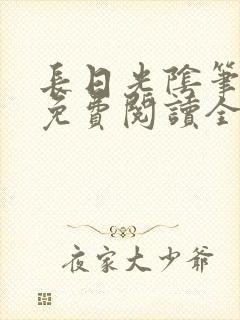 長日光陰筆
免費閱讀全
夜家大少爺